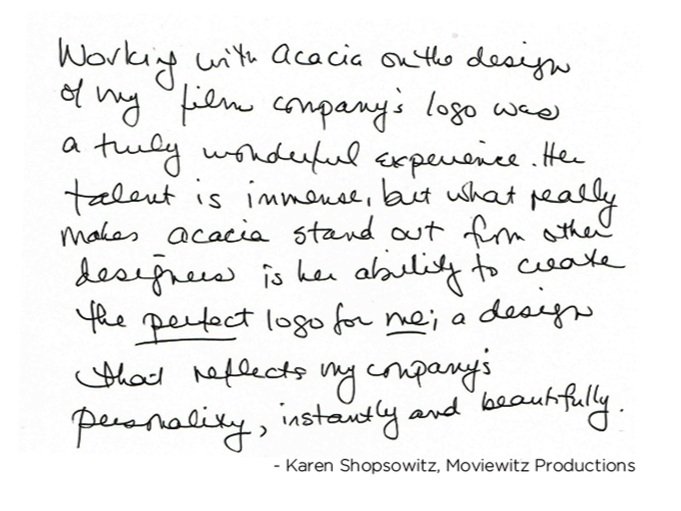 Working with acacia on the design
of my film company's logo was
a truly wonderful experience. Her
talent is immense, but what really
makes acacia stand out from other
designers is her ability to create
the perfect logo for me; a design
that reflects my company's
personality, instantly and beautifully.
- Karen Shopsowitz, Moviewitz Productions